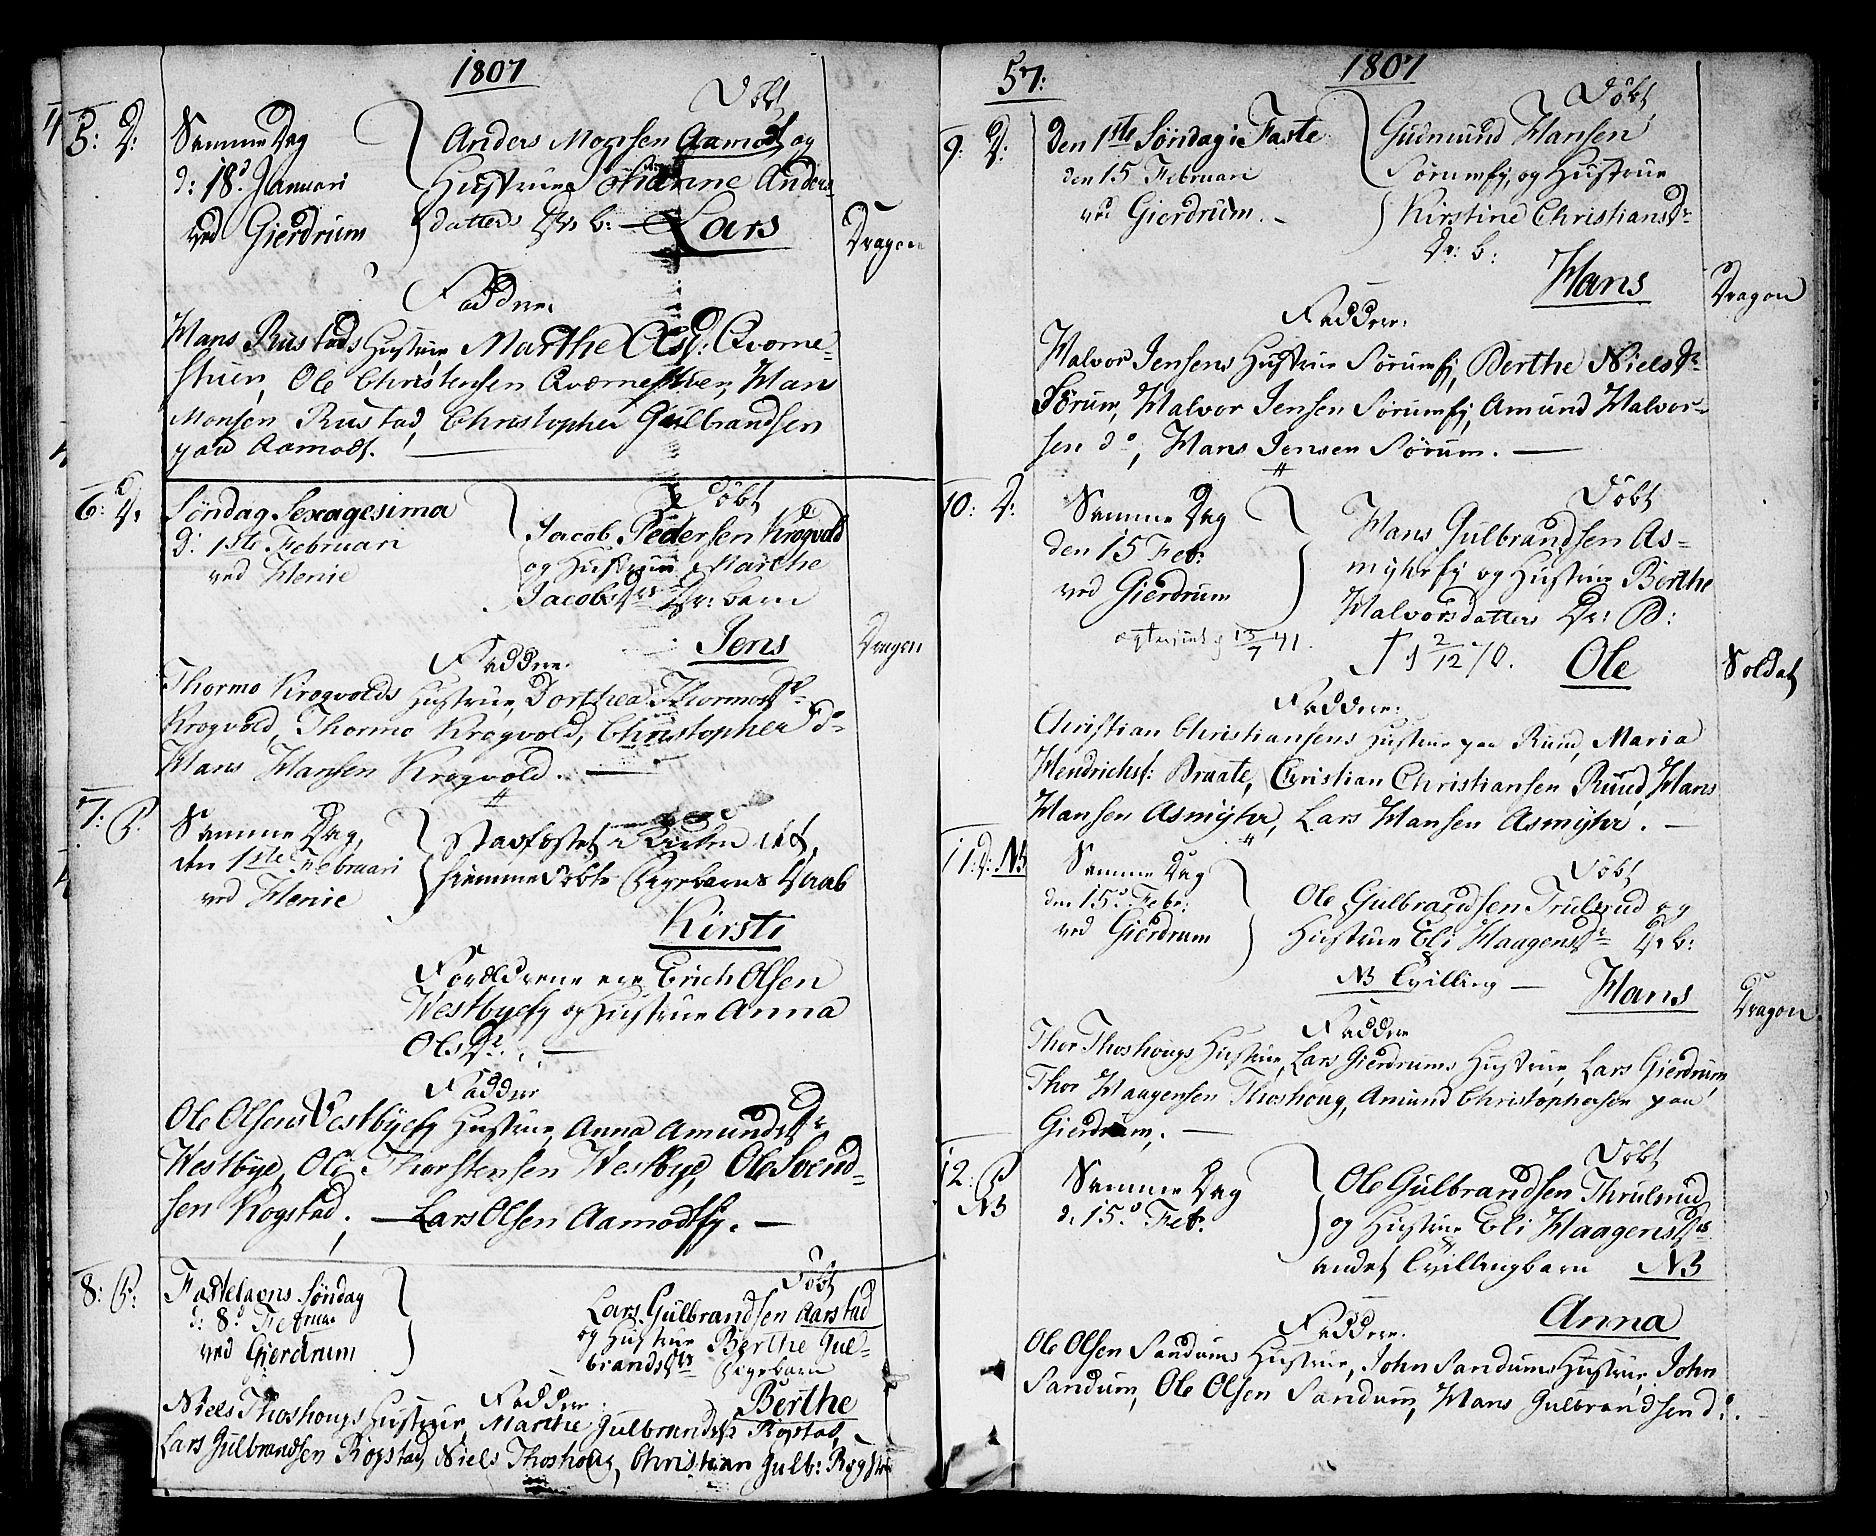 1807
5: D:
Samme Dag
d: 18d Januari
ved Gierdrum
Døbt
Anders Monsen Aamodt og
Hustrue Johanne Anders
datters Dr. b: — Lars
Dragon
Faddere.
Hans Rustads Hustrue, Marthe Olsd: Qværne-
stuen, Ole Christensen Qværnestuen, Hans
Monsen Rustad, Christopher Gulbrandsen
paa Aamodt. —
6: D:
Søndag Sexagesima
d: 1ste Februari
ved Henie
Døbt
Jacob Pedersen Krogvold
og Hustrue Marthe
Jacobsdrs Dr: barn
Jens
Dragon
Faddere.
Thormo Krogvolds Hustrue, Dorthea Thormodsdr
Krogvold, Thormo Krogvold, Christopher do
Hans Hansen Krogvold. —
7: P:
Samme Dag,
den 1ste Februari
ved Henie
Stadfæstet i Kirken det
hiemme døbte Pigebarns Daab
Kirsti
Forældrene ere Erich Olsen
Westbyeej og Hustrue Anna
Olsdr. —
Faddere
Ole Olsens Vestbyeej Hustrue, Anna Amundsdr
Westbye, Ole Thorstensen Westbye, Ole Svend-
sen Kogstad, — Lars Olsen Aamodtej. —
8: P:
Fastelavns Søndag
d: 8d Februar
ved Gierdrum
Døbt
Lars Gulbrandsen Aarstad
og Hustrue Berthe Gul-
brandsdrs Pigebarn
Berthe
Faddere.
Niels Thoshougs Hustrue, Marthe Gulbrandsdr Rogstad,
Lars Gulbrandsen Rogstad, Niels Thoshoug, Christian Gulb: Rogstad
57:
1807
9: D:
Den 1ste Søndag i Faste
den 15 Februari
ved Gierdrum. -
Døbt
Gudmund Hansen
Sørumej, og Hustrue
Kirstine Christiansdr
Dr: b:
Hans
Dragon
Faddere.
Halvor Jensens Hustrue Sørumej, Berthe Nielsdr
Sørum, Halvor Jensen Sørumej, Amund Halvor-
sen do, Hans Jensen Sørum. —
10: D:
Samme Dag
den 15 Febr.
ved Gierdrum
Døbt
Hans Gulbrandsen As-
myhrej og Hustrue Berthe
Halvorsdatters Dr: B:
13/7 41.
† d 2/12 70.
Ole
Soldat
Faddere.
Christian Christiansens Hustrue paa Ruud, Maria
Hendrichsd: Braate, Christian Christiansen Ruud, Hans
Hansen Asmyhr, Lars Hansen Asmyhr. —
11: D: NB
Samme Dag
den 15d Febr:
ved Gierdrum
Døbt
Ole Gulbrandsen Trulsrud og
Hustrue Eli Haagensdr Dr b:
NB Tvilling — Hans
Dragon
Faddere
Thor Thoshougs Hustrue, Lars Gierdrums Hustrue, Lars Gierdrum,
Thor Haagensen Thoshoug, Amund Christophersen paa
Gierdrum. —
12: P
NB
Samme Dag
d. 15d Febr.
Døbt
Ole Gulbrandsen Thrulsrud
og Hustrue Eli Haagensdrs
andet Tvillingbarn NB
Anna
Faddere.
Ole Olsen Sandums Hustrue, John Sandums Hustrue, John
Sandum, Ole Olsen Sandum, Hans Gulbrandsen do.